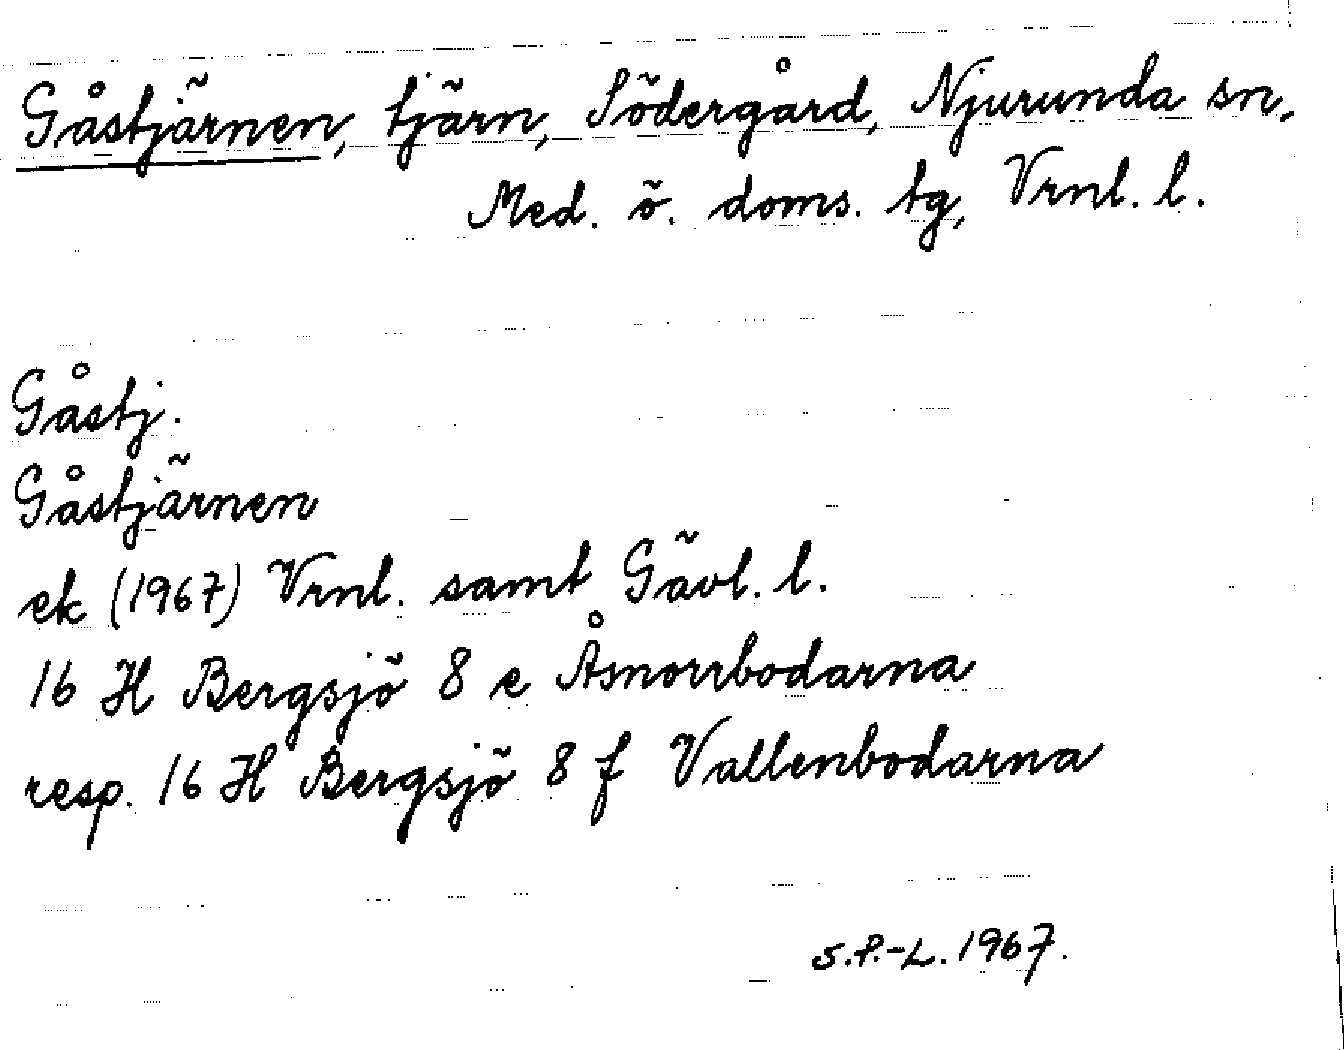 Gåstjärnen, tjärn, Södergård, Njurunda sn,
Med. ö. doms. tg, Vrnl. l.
Gåstj.
Gåstjärnen
ek (1967) Vrnl. samt Gävl. l.
16 H Bergsjö 8 e Åsnorrbodarna
resp. 16 H Bergsjö 8 f Vallenbodarna
S.P.-L. 1967.